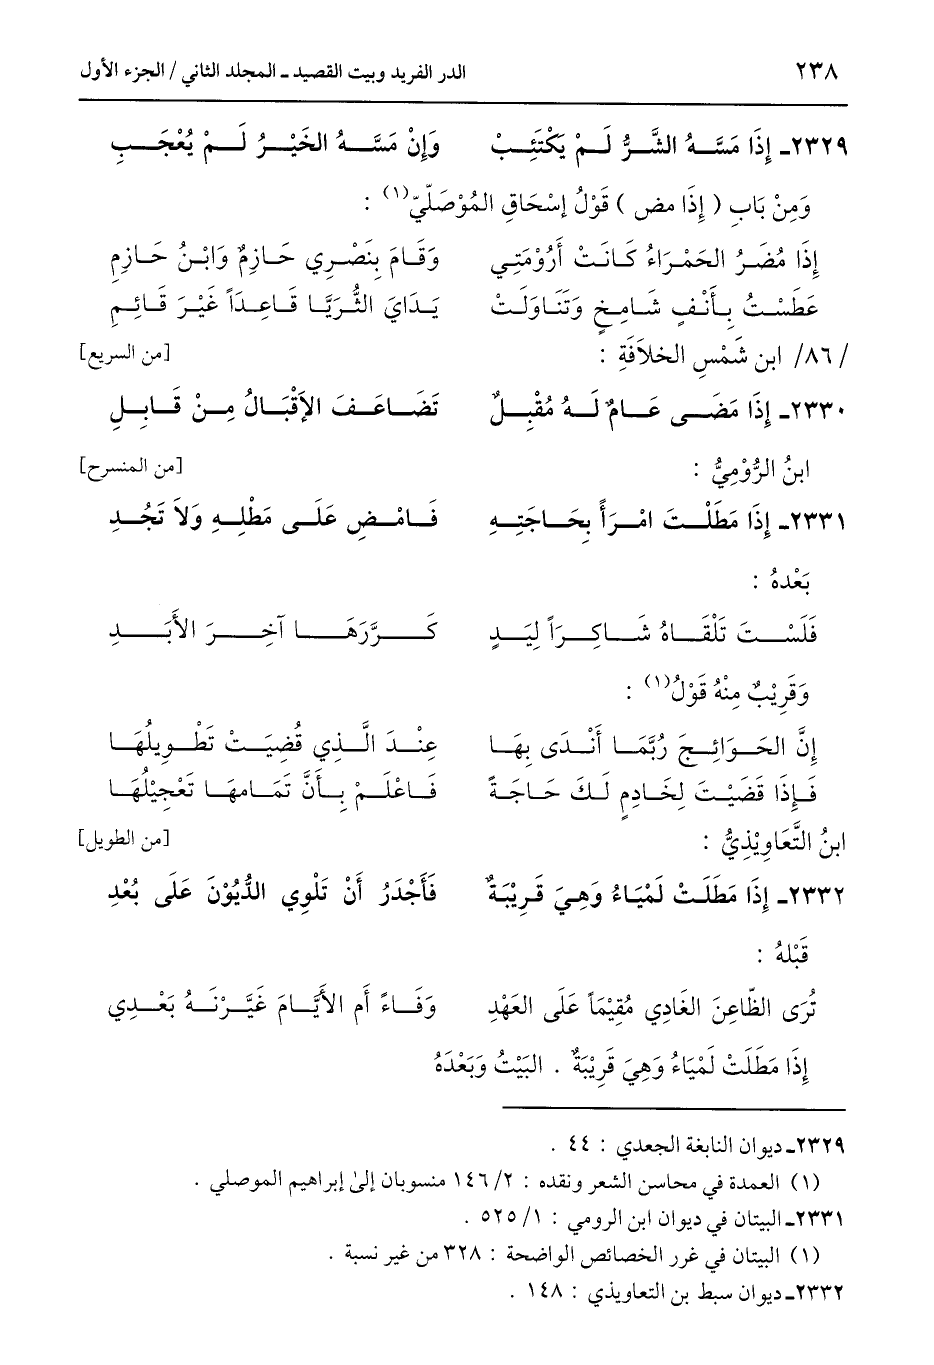 ٢٣٨ الدر الفريد وبيت القصيد ـ المجلد الثاني / الجزء الأول
٢٣٢٩ـ إِذَا مَسَّهُ الشَّرُّ لَمْ يَكْتَئِبْ وَإِنْ مَسَّهُ الخَيْرُ لَمْ يُعْجَبِ
وَمِنْ بَابِ ( إِذَا مض ) قَوْلُ إِسْحَاقِ المُوْصَلِيّ(١) :
إِذَا مُضَرُ الحَمْرَاءُ كَانَتْ أَرُوْمَتِي وَقَامَ بِنَصْرِي حَازِمٌ وَابْنُ حَازِمِ
عَطَسْتُ بِأَنْفٍ شَامِخٍ وَتَنَاوَلَتْ يَدَايَ الثُّرَيَّا قَاعِدَاً غَيْرَ قَائِمِ
/ ٨٦/ ابن شَمْسِ الخلاَفَةِ : [من السريع]
٢٣٣٠ـ إِذَا مَضَى عَامٌ لَهُ مُقْبِلٌ تَضَاعَفَ الإقْبَالُ مِنْ قَابِلِ
ابنُ الرُّوْمِيُّ : [من المنسرح]
٢٣٣١ـ إِذَا مَطَلْتَ امْرَأً بِحَاجَتِهِ فَامْضِ عَلَى مَطْلِهِ وَلاَ تَجُدِ
بَعْدهُ :
فَلَسْتَ تَلْقَاهُ شَاكِرَاً لِيَدٍ كَرَّرَهَا آخِرَ الأَبَدِ
وَقَرِيْبٌ مِنْهُ قَوْلُ(١) :
إِنَّ الحَوَائِجَ رُبَّمَا أَنْدَى بِهَا عِنْدَ الَّذِي قُضِيَتْ تَطْوِيلُهَا
فَإِذَا قَضَيْتَ لِخَادِمٍ لَكَ حَاجَةً فَاعْلَمْ بِأَنَّ تَمَامهَا تَعْجِيْلُهَا
ابنُ التَّعَاوِيْذِيُّ : [من الطويل]
٢٣٣٢ـ إِذَا مَطَلَتْ لَمْيَاءُ وَهِيَ قَرِيْبَةٌ فَأَجْدَرُ أَنْ تَلْوِي الدُّيُوْنَ عَلَى بُعْدِ
قَبْلهُ :
تُرَى الظّاعِنَ الغَادِي مُقِيْمَاً عَلَى العَهْدِ وَفَاءً أم الأَيَّامَ غَيَّرْنَهُ بَعْدِي
إِذَا مَطَلَتْ لَمْيَاءُ وَهِيَ قَرِيْبَةٌ . البَيْتُ وَبَعْدَهُ
٢٣٢٩ـ ديوان النابغة الجعدي : ٤٤ .
(١) العمدة في محاسن الشعر ونقده : ٢/ ١٤٦ منسوبان إلىٰ إبراهيم الموصلي .
٢٣٣١ـ البيتان في ديوان ابن الرومي : ١/ ٥٢٥ .
(١) البيتان في غرر الخصائص الواضحة : ٣٢٨ من غير نسبة .
٢٣٣٢ـ ديوان سبط بن التعاويذي : ١٤٨ .